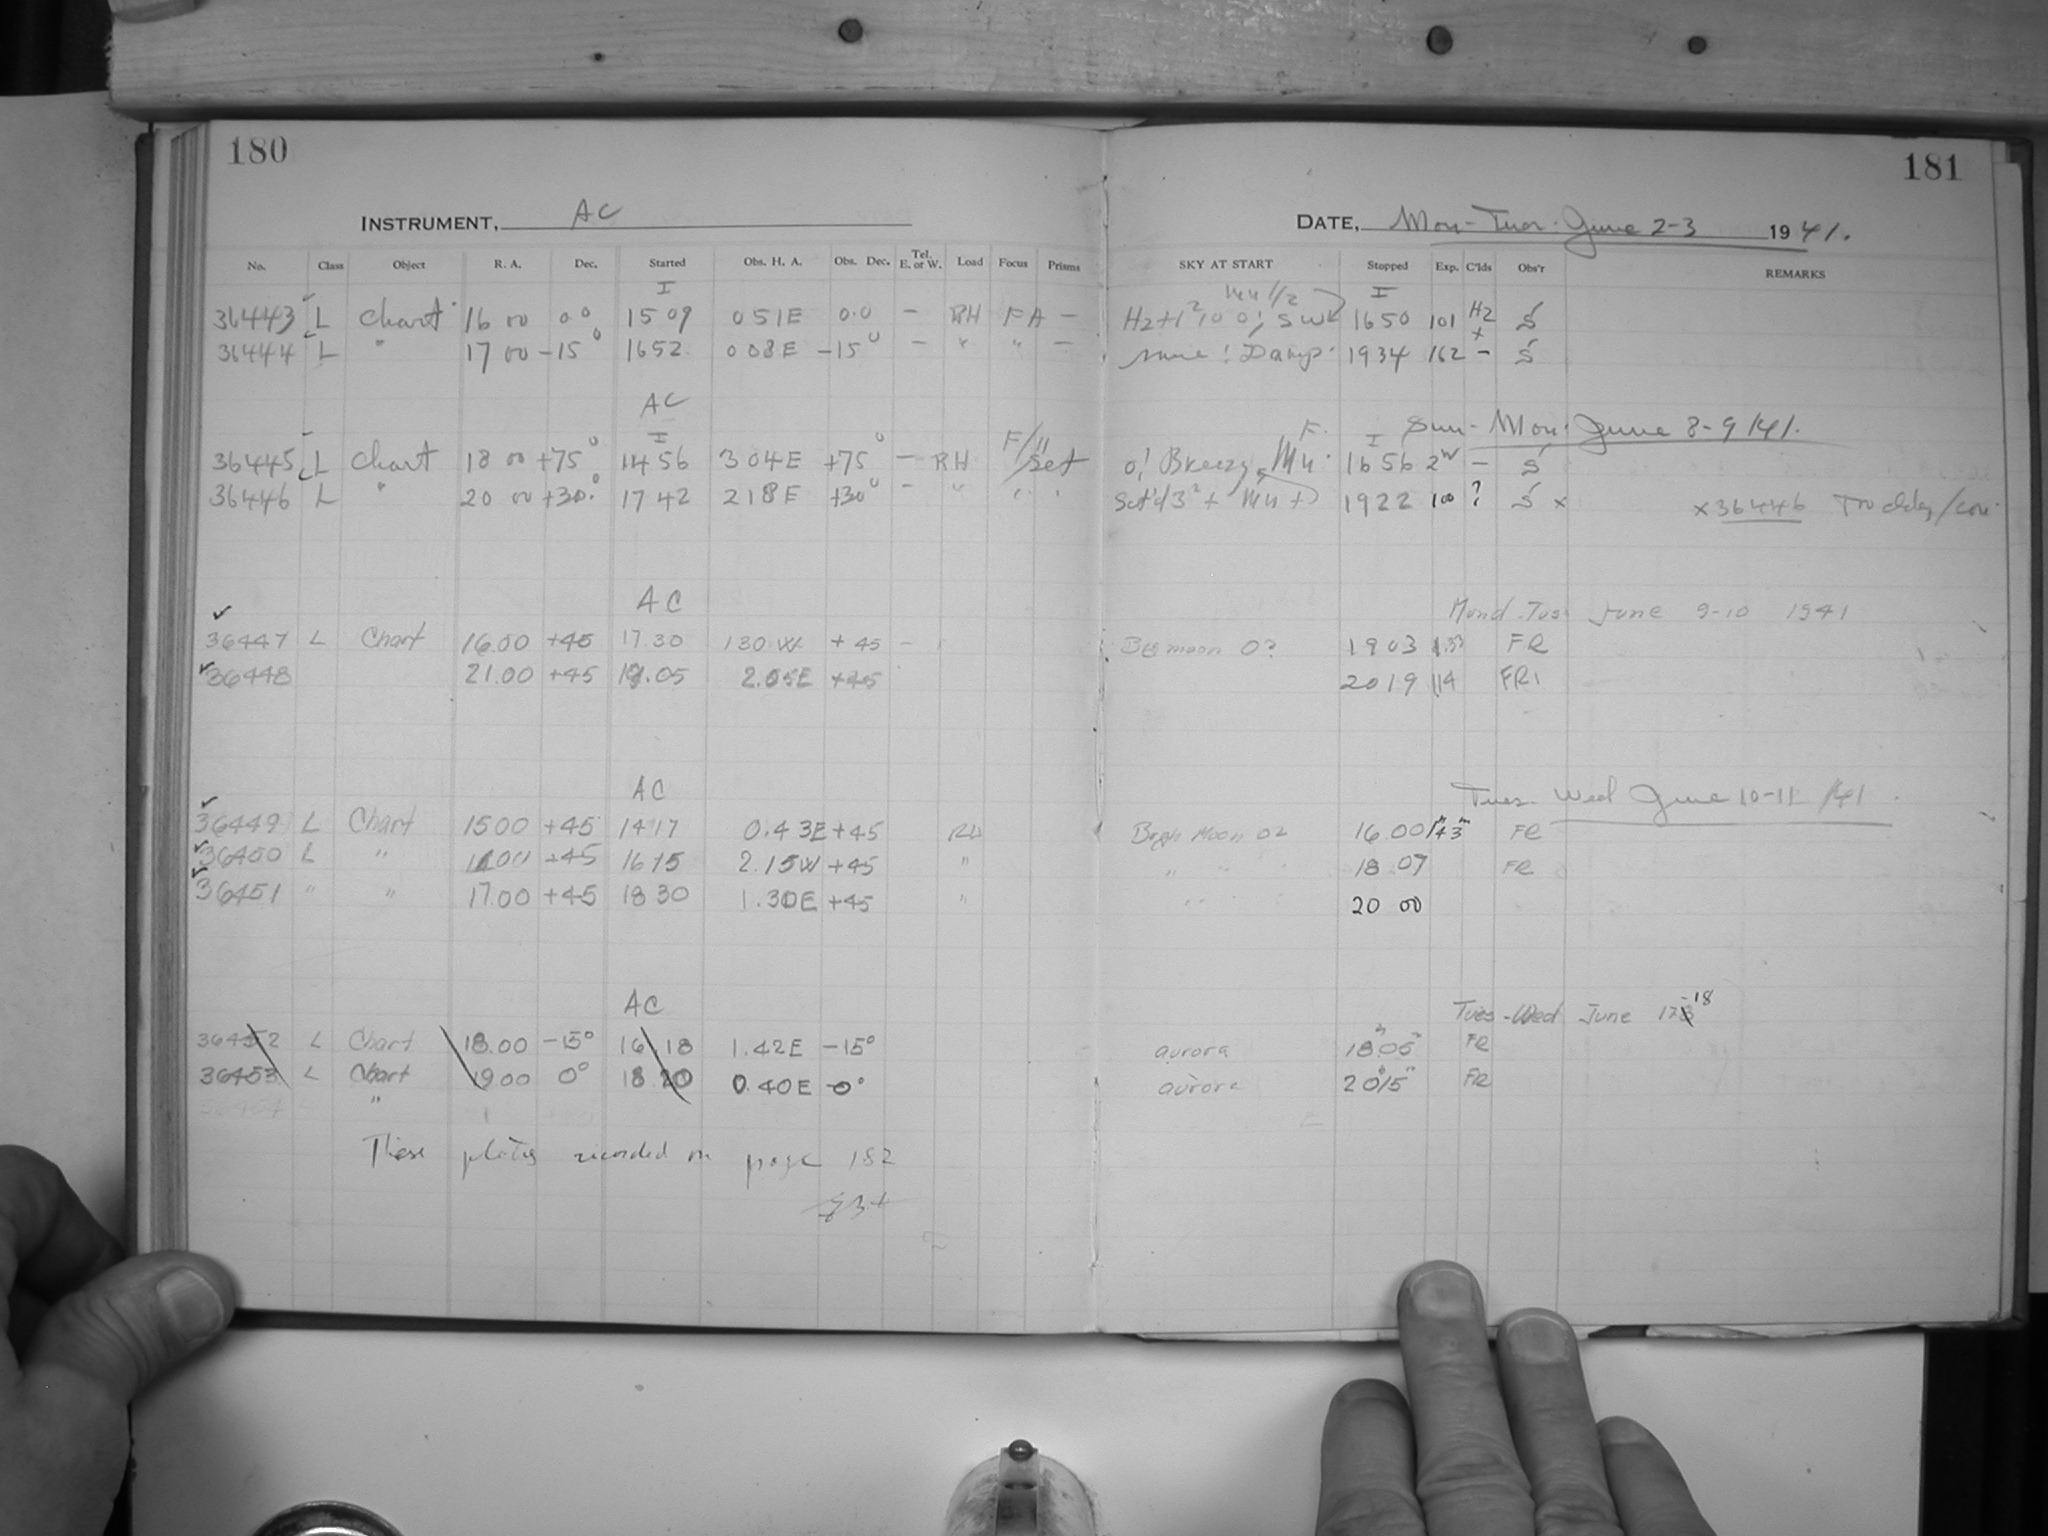 180
181
INSTRUMENT, AC
DATE, Mon-Tues. June 2-3 1941.
No. Class Object R. A. Dec. Started Obs. H. A. Obs. Dec. Tel. E. or W. Load Focus Prisms SKY AT START Stopped Exp. C'lds Obs'r REMARKS
36443 L Chart 16 00 00 1509 051E 0.0 — RH FA — 1650 101 H2 S
36444 L " 17 00 -15° 1652 008E -15° — " " — Damp. 1934 162 — S
AC
Sun-Mon. June 8-9/41.
36445 L Chart 18 00 +75° 1456 304E +75° — RH F/11 Set o! Breezy, Mn. 1656 — S
36446 L " 20 00 +30° 1742 218E +30° — " 1922 100 ? S x x 36446
AC
Mond-Tues June 9-10 1941
36447 L Chart 16.00 +45 17.30 130 W +45 — moon 0? 1903 1.33 FR
36448 21.00 +45 19.05 2.05E +45 2019 114 FR
AC
Tues-Wed June 10-11/41
36449 L Chart 1500 +45 1417 0.43E +45 RH Moon 16.00 FR
36450 L " +45 1615 2.15W +45 " " 18 07 FR
36451 " " 17.00 +45 18 30 1.30E +45 " 20 00
AC
Tues-Wed June 17-18
36452 L Chart 18.00 -15° 16.18 1.42E -15° aurora 18.05 FR
36453 L Chart 19.00 0° 18 20 0.40E -0° aurora 2015 FR
"
These plates recorded on page 182